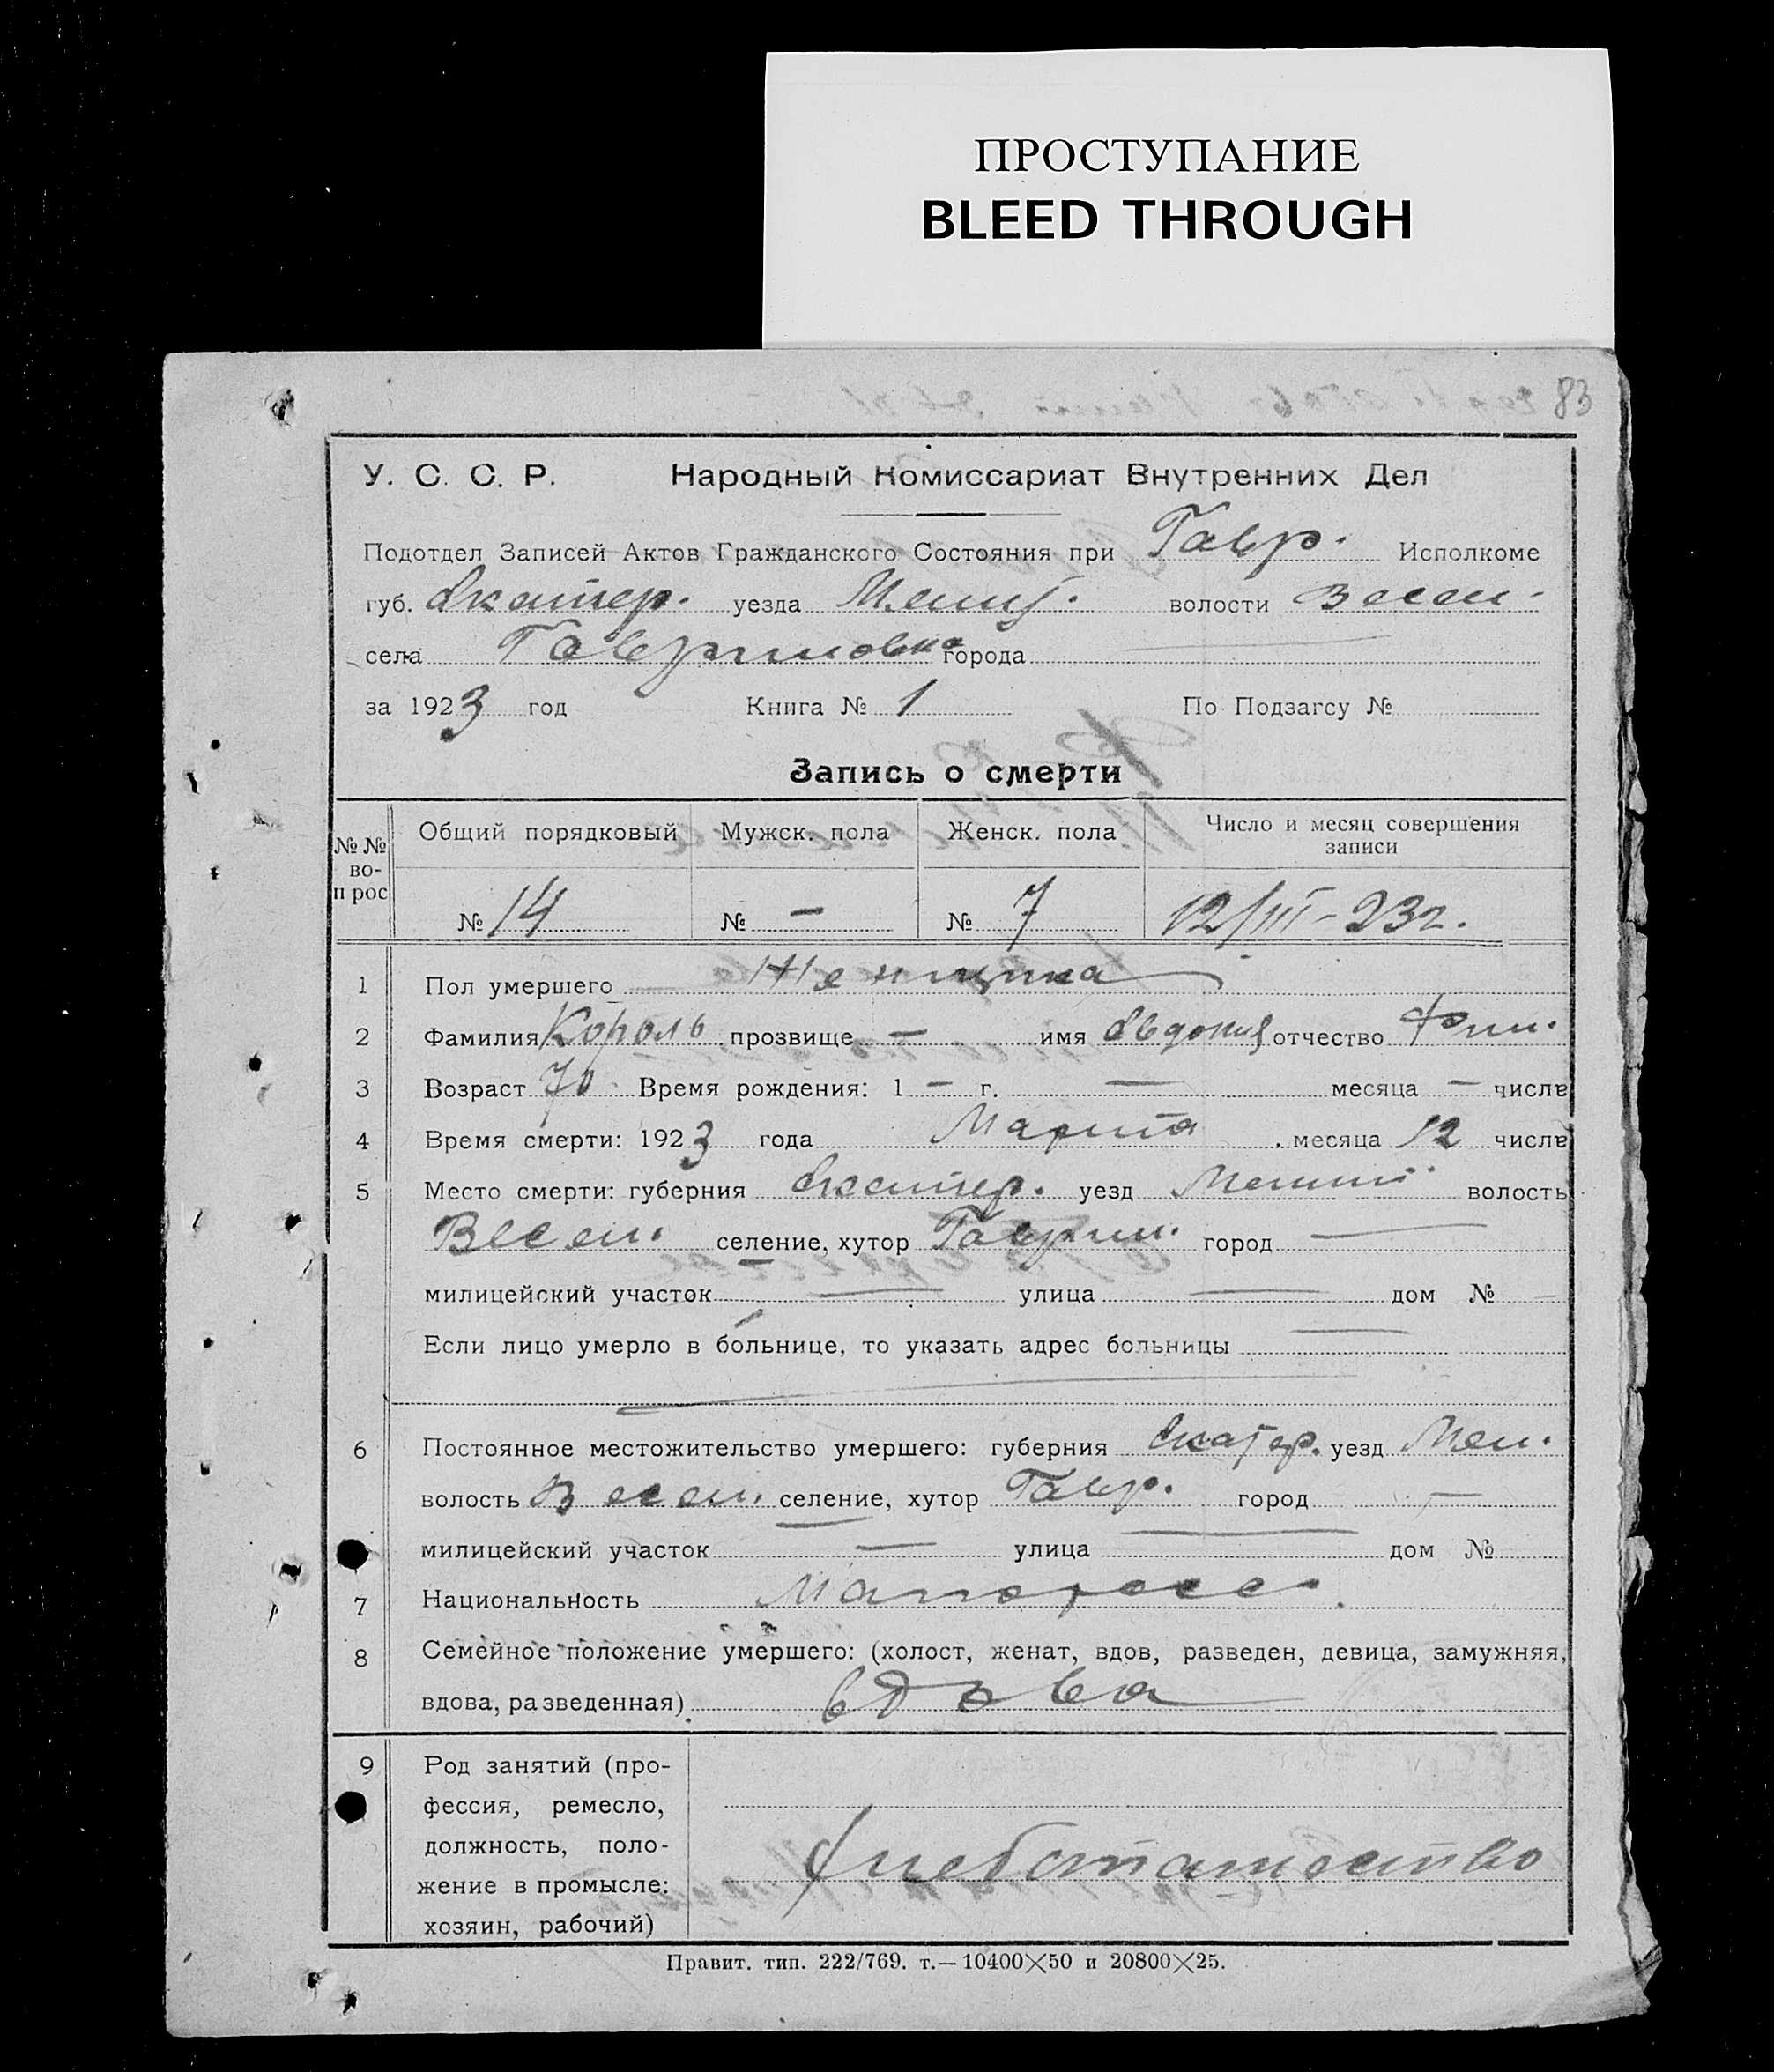 ПРОСТУПАНИЕ
BLEED THROUGH
83
У. С. С. Р. Народный Комиссариат Внутренних Дел
Подотдел Записей Актов Гражданского Состояния при Гавр. Исполкоме
губ. Екатер. уезда Мелит. волости Весел.
села Гавриловка города —
за 1923 год Книга № 1 По Подзагсу №
Запись о смерти
№№ во-прос Общий порядковый Мужск. пола Женск. пола Число и месяц совершения записи
№ 14 № — № 7 12/III-23г.
1 Пол умершего Женщина
2 Фамилия Король прозвище — имя Евдокия отчество
3 Возраст 70 Время рождения: 1 — г. — месяца — числа
4 Время смерти: 1923 года Марта месяца 12 числа
5 Место смерти: губерния Екатер. уезд Мелит волость
Весел. селение, хутор Гаврил. город —
милицейский участок — улица — дом № —
Если лицо умерло в больнице, то указать адрес больницы —
6 Постоянное местожительство умершего: губерния Екатер. уезд Мел.
волость Весел. селение, хутор Гавр. город —
милицейский участок — улица — дом №
7 Национальность Малоросс.
8 Семейное положение умершего: (холост, женат, вдов, разведен, девица, замужняя,
вдова, разведенная) вдова
9 Род занятий (про-
фессия, ремесло,
должность, поло-
жение в промысле:
хозяин, рабочий)
Хлебопашество
Правит. тип. 222/769. т.—10400×50 и 20800×25.